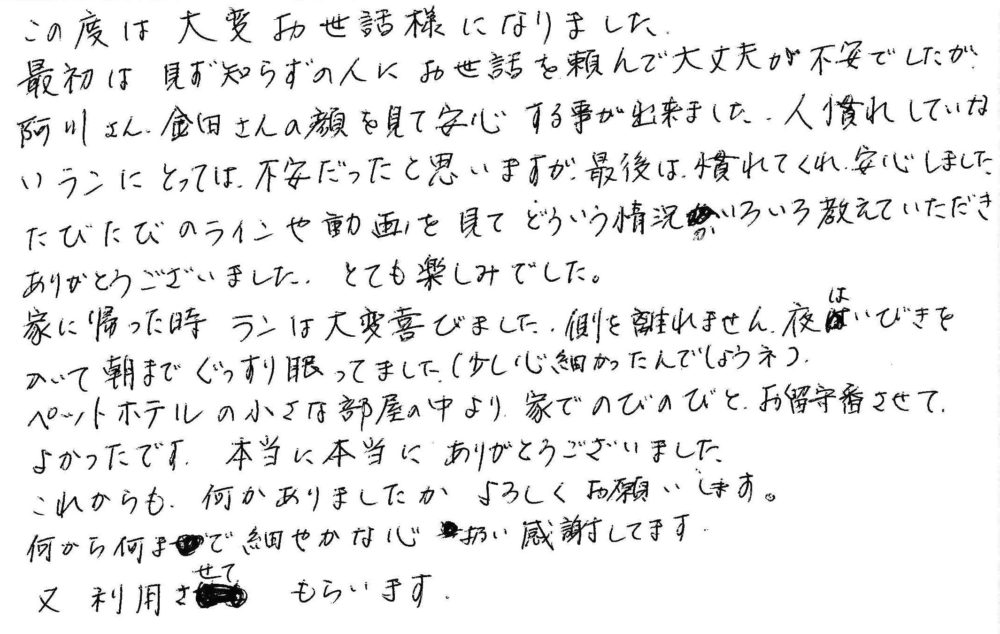 この度は大変お世話様になりました.
最初は見ず知らずの人にお世話を頼んで大丈夫か不安でしたが、
阿川さん、金田さんの顔を見て安心する事が出来ました、人慣れしていな
いランにとっては、不安だったと思いますが、最後は、慣れてくれ、安心しました
たびたびのラインや動画を見てどういう情況かいろいろ教えていただき
ありがとうございました、とても楽しみでした。
家に帰った時ランは大変喜びました、側を離れません、夜はいびきを
かいて朝までぐっすり眠ってました、(少し心細かったんでしょうネ).
ペットホテルの小さな部屋の中より、家でのびのびと、お留守番させて、
よかったです、本当に本当にありがとうございました、
これからも、何かありましたかよろしくお願いします。
何から何まで細やかな心扱い感謝してます.
又利用させてもらいます.